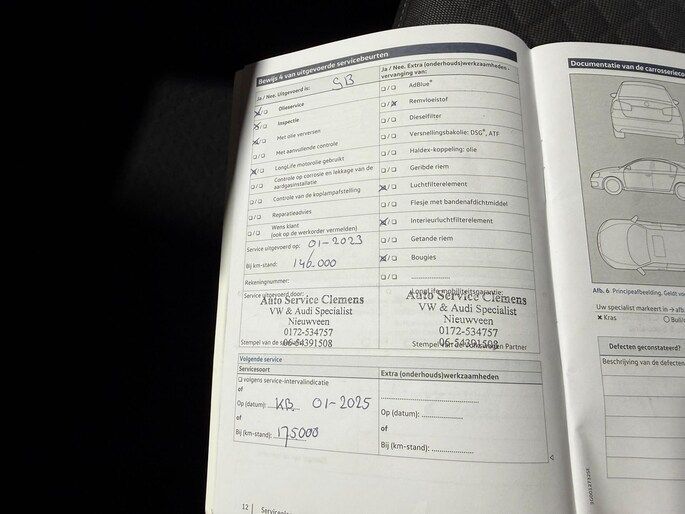 Bewijs 4 van uitgevoerde servicebeurten
Ja / Nee. Uitgevoerd is: SB
Olieservice
Inspectie
Met olie verversen
Met aanvullende controle
LongLife motorolie gebruikt
Controle op corrosie en lekkage van de
aardgasinstallatie
Controle van de koplampafstelling
Reparatieadvies
Wens klant
(ook op de werkorder vermelden)
Service uitgevoerd op: 01-2023
Bij km-stand: 146.000
Rekeningnummer:
Service uitgevoerd door:
Auto Service Clemens
VW & Audi Specialist
Nieuwveen
0172-534757
06-54391508
Stempel van de
Ja / Nee. Extra (onderhouds)werkzaamheden -
vervanging van:
AdBlue®
Remvloeistof
Dieselfilter
Versnellingsbakolie: DSG®, ATF
Haldex-koppeling: olie
Geribde riem
Luchtfilterelement
Flesje met bandenafdichtmiddel
Interieurluchtfilterelement
Getande riem
Bougies
LongLife mobiliteitsgarantie:
Auto Service Clemens
VW & Audi Specialist
Nieuwveen
0172-534757
06-54391508
Stempel van de Volkswagen Partner
Volgende service
Servicesoort
volgens service-intervalindicatie
of
Op (datum): KB 01-2025
of
Bij (km-stand): 175000
Extra (onderhouds)werkzaamheden
Op (datum):
of
Bij (km-stand):
12
Documentatie van de carrosserieco
Afb. 6 Principeafbeelding. Geldt vo
Uw specialist markeert in → afb.
× Kras
Defecten geconstateerd?
Beschrijving van de defecten